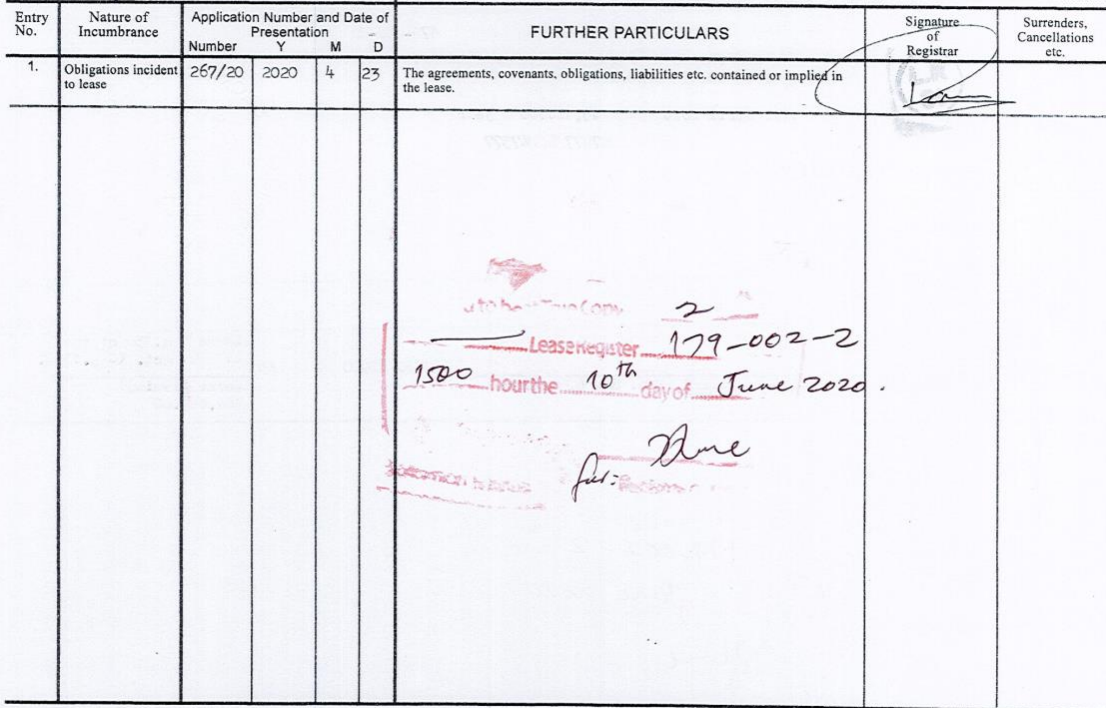 Entry No.
Nature of Incumbrance
Application Number and Date of Presentation
Number Y M D
FURTHER PARTICULARS
Signature of Registrar
Surrenders, Cancellations etc.
1.
Obligations incident to lease
267/20 2020 4 23
The agreements, covenants, obligations, liabilities etc. contained or implied in
the lease.
to be True Copy 2
Lease Register 179-002-2
1500 hour the 10th day of June 2020.
for:
Registrar